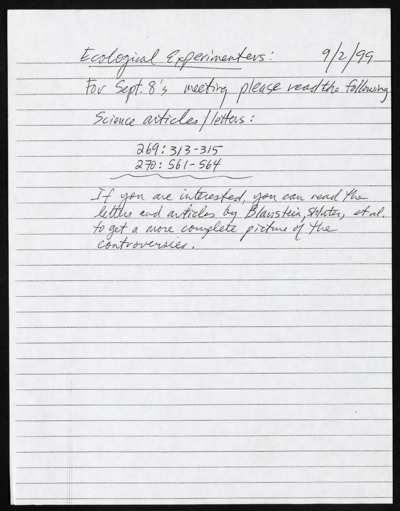 Ecological Experimenters: 9/2/99
For Sept. 8's meeting please read the following
Science articles/letters:
269: 313-315
270: 561-564
If you are interested, you can read the
letters and articles by Blaustein, et al.
to get a more complete picture of the
controversies.